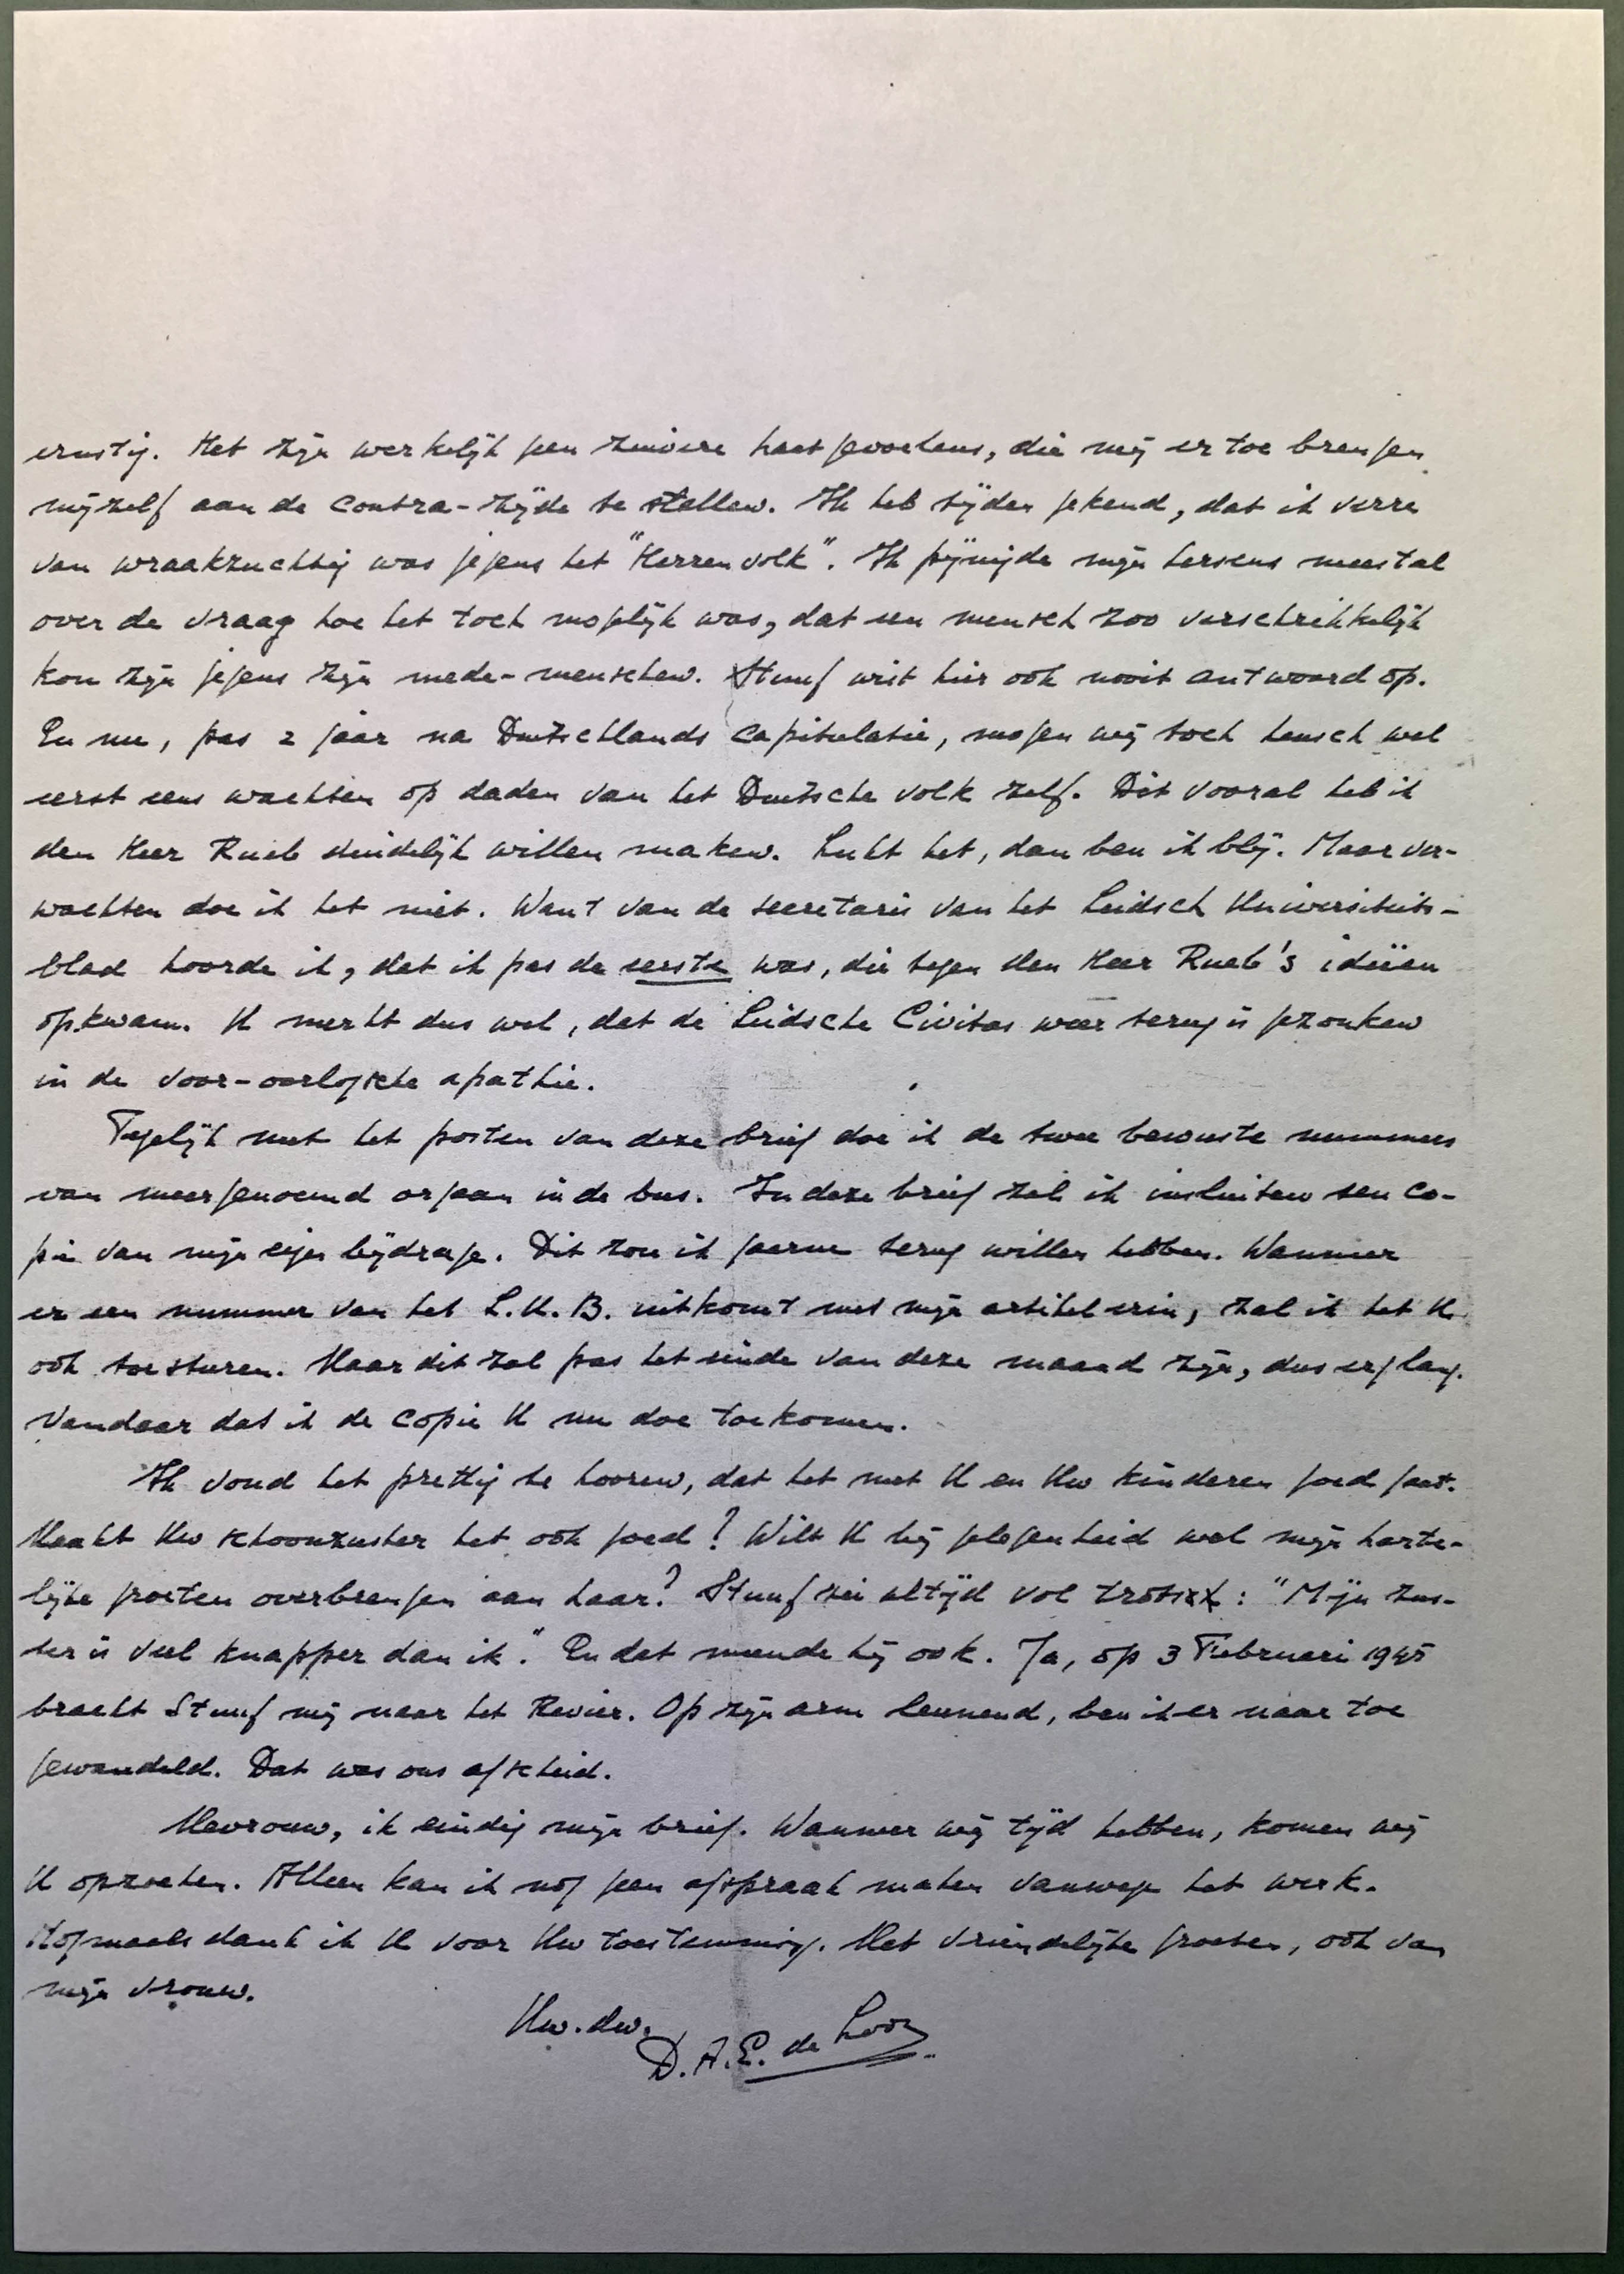 ernstig. Het zijn werkelijk geen zuivere haatgevoelens, die mij er toe brengen
mijzelf aan de contra-zijde te stellen. Ik heb tijden gekend, dat ik verre
van wraakzuchtig was jegens het "Herrenvolk". Ik pijnigde mijn hersens meestal
over de vraag hoe het toch mogelijk was, dat een mensch zoo verschrikkelijk
kon zijn jegens zijn mede-menschen. Stuuf wist hier ook nooit antwoord op.
En nu, pas 2 jaar na Duitschlands capitulatie, mogen wij toch heusch wel
eerst eens wachten op daden van het Duitsche volk zelf. Dit vooral heb ik
den Heer Rueb duidelijk willen maken. Lukt het, dan ben ik blij. Maar ver-
wachten doe ik het niet. Want van de secretaris van het Leidsch Universiteits-
blad hoorde ik, dat ik pas de eerste was, die tegen den Heer Rueb's ideeën
opkwam. U merkt dus wel, dat de Leidsche Civitas weer terug is gezonken
in de voor-oorlogsche apathie.
Tegelijk met het posten van deze brief doe ik de twee bewuste nummers
van meergenoemd orgaan in de bus. In deze brief zal ik insluiten een co-
pie van mijn eigen bijdrage. Dit zou ik gaarne terug willen hebben. Wanneer
er een nummer van het L.U.B. uitkomt met mijn artikel erin, zal ik het U
ook toesturen. Maar dit zal pas het einde van deze maand zijn, dus erg lang.
Vandaar dat ik de copie U nu doe toekomen.
Ik vond het prettig te hooren, dat het met U en Uw kinderen goed gaat.
Maakt Uw schoonzuster het ook goed? Wilt U bij gelegenheid wel mijn harte-
lijke groeten overbrengen aan haar? Stuuf zei altijd vol trots: "Mijn zus-
ter is veel knapper dan ik." En dat meende hij ook. Ja, op 3 Februari 1945
bracht Stuuf mij naar het Revier. Op zijn arm leunend, ben ik er naar toe
gewandeld. Dat was ons afscheid.
Mevrouw, ik eindig mijn brief. Wanneer wij tijd hebben, komen wij
U opzoeken. Alleen kan ik nog geen afspraak maken vanwege het werk.
Nogmaals dank ik U voor Uw toestemming. Met vriendelijke groeten, ook van
mijn vrouw.
Uw. dw.
D. A. E. de Looz